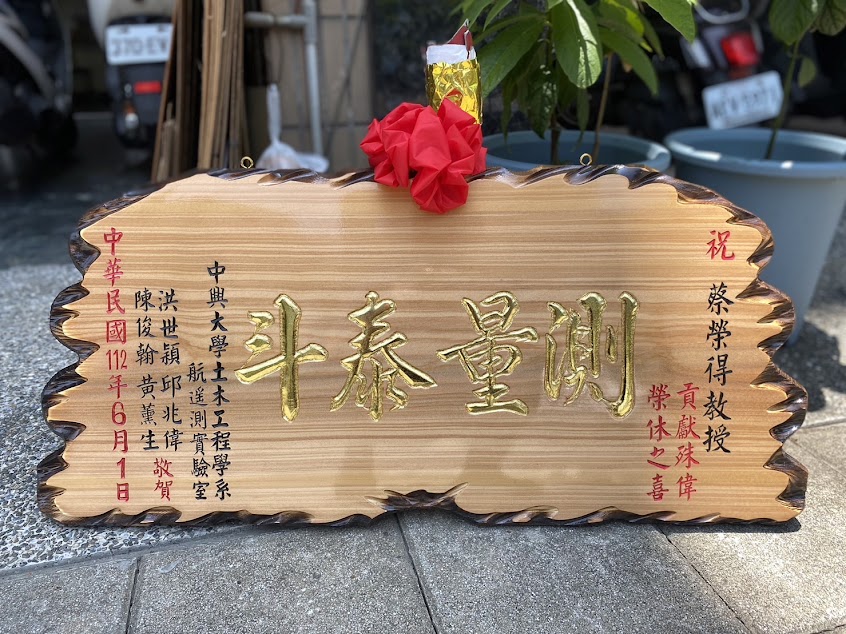 祝
蔡榮得教授
貢獻殊偉
榮休之喜
測量泰斗
中興大學土木工程學系
航遥測實驗室
洪世穎 邱兆偉
陳俊翰 黃薰生
敬賀
中華民國112年6月1日